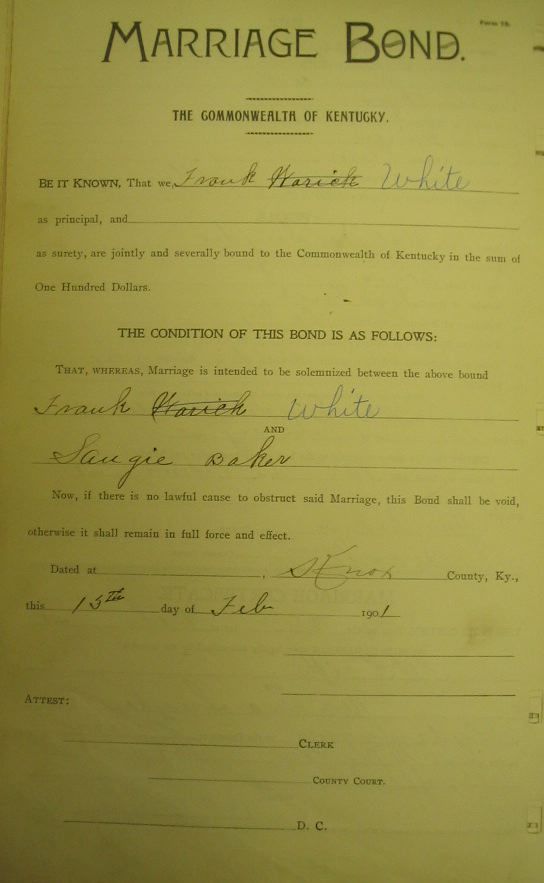 MARRIAGE BOND.
THE COMMONWEALTH OF KENTUCKY.
BE IT KNOWN, That we, Frank Warick White
as principal, and
as surety, are jointly and severally bound to the Commonwealth of Kentucky in the sum of
One Hundred Dollars.
THE CONDITION OF THIS BOND IS AS FOLLOWS:
THAT, WHEREAS, Marriage is intended to be solemnized between the above bound
Frank Warick White
AND
Baker
Now, if there is no lawful cause to obstruct said Marriage, this Bond shall be void,
otherwise it shall remain in full force and effect.
Dated at , Knox County, Ky.,
this 15th day of Feb 1901
ATTEST:
CLERK
COUNTY COURT.
D. C.